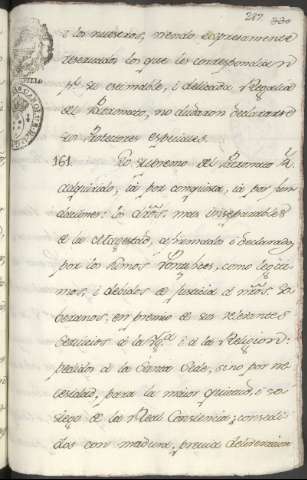 287.
i los nuestros, siendo expresamente
reservados los que les corresponden
pr. su estimable, i delicada Regalia
del Patronato, no dudaron declararse
sus Protectores especiales.
161. Lo supremo del Patronato R.
adquirido, ia por conquista, ia por fun
daciones: los dros. mas inseparables
de la Magestad, afirmados i declarados
por los Sumos Pontifices, como legiti
mos, i debidos de justicia a nros. So
beranos, en premio de sus relevantes
servicios a la i a la Religion:
pedidos a la Santa Sede, sino por ne
cesidad, para la maior quietud, i so
siego de la Real Conciencia; concedi
dos con madura, previa deliberacion